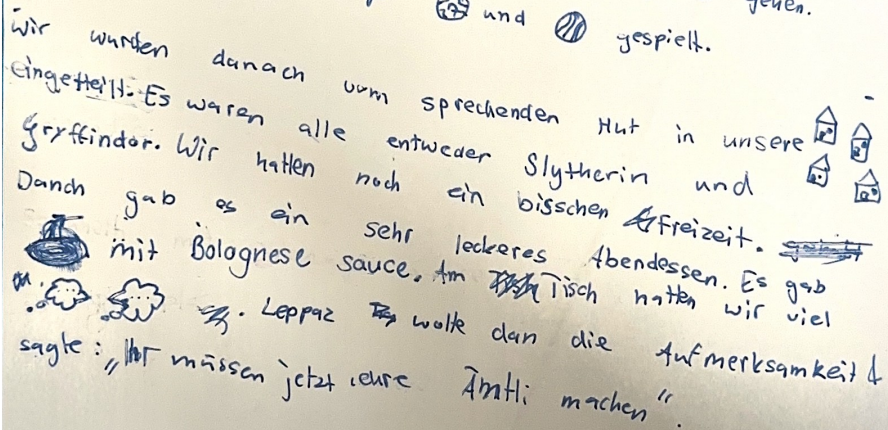 gehen.
und gespielt.
Wir wurden danach vom sprechenden Hut in unsere
eingetteilt. Es waren alle entweder Slytherin und
Gryffindor. Wir hatten noch ein bisschen freizeit.
Danch gab es ein sehr leckeres Abendessen. Es gab
mit Bolognese sauce. Am Tisch hatten wir viel
. Leppaz wolte dan die Aufmerksamkeit &
sagte: „Ihr müssen jetzt eure Ämtli machen".